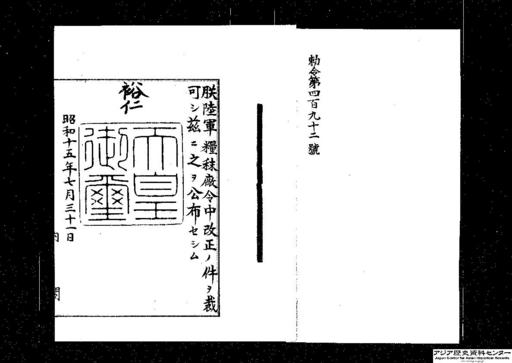 勅令第四百九十二號
朕陸軍糧秣廠令中改正ノ件ヲ裁
可シ茲ニ之ヲ公布セシム
裕仁
天皇
御璽
昭和十五年七月三十一日
内閣
アジア歴史資料センター
Japan Center for Asian Historical Records